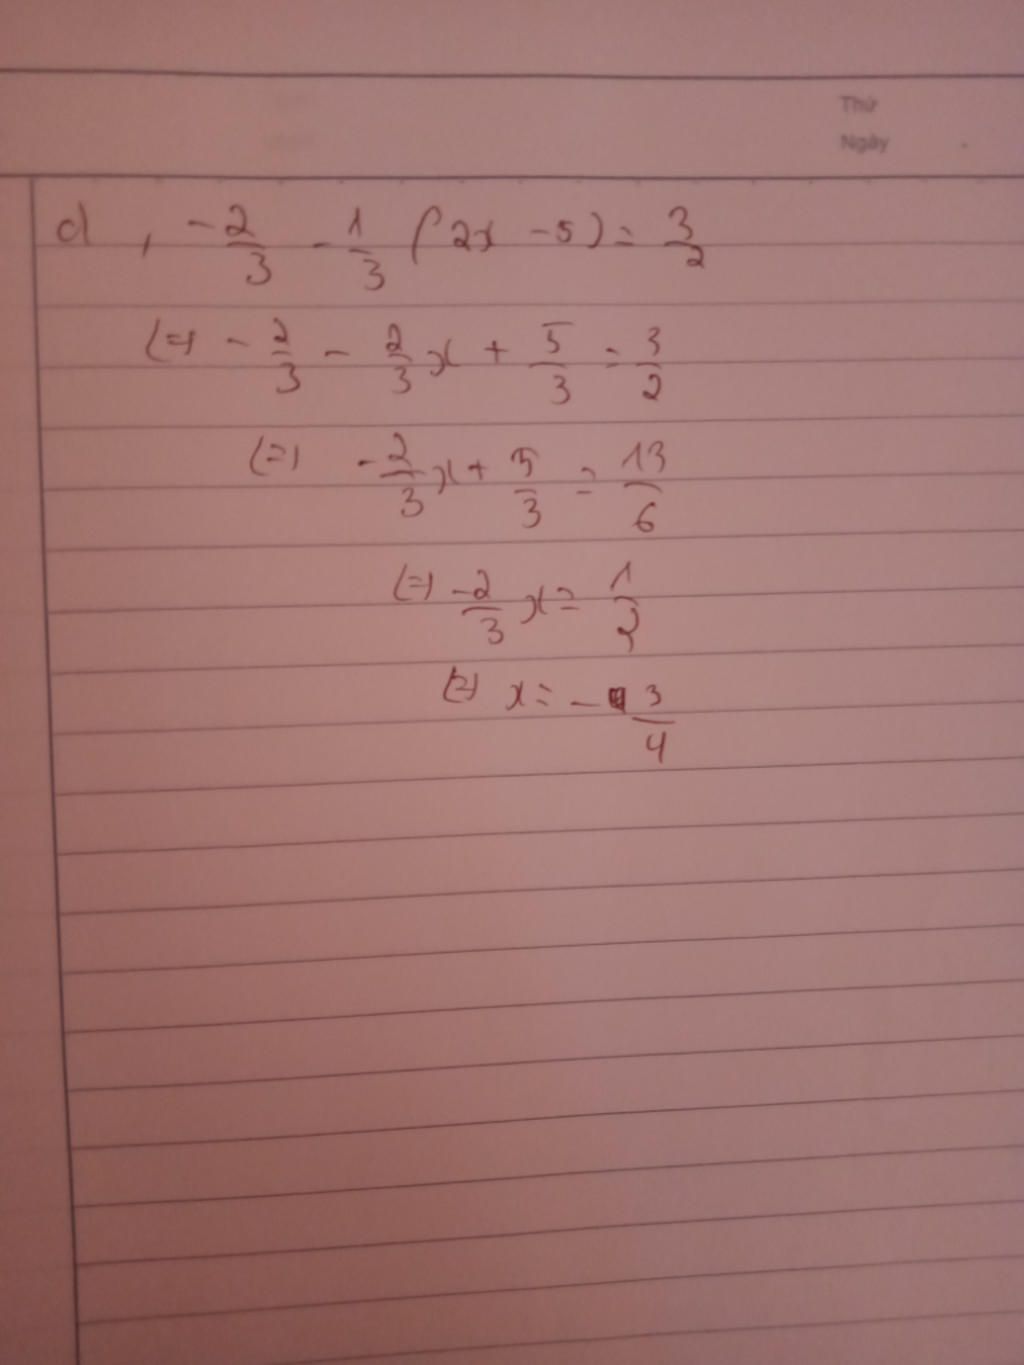 Thứ
Ngày
d, -2/3 - 1/3 (2x - 5) = 3/2
(=) - 2/3 - 2/3 x + 5/3 = 3/2
(=) -2/3 x + 5/3 = 13/6
(=) -2/3 x = 1/2
(=) x = - 3/4